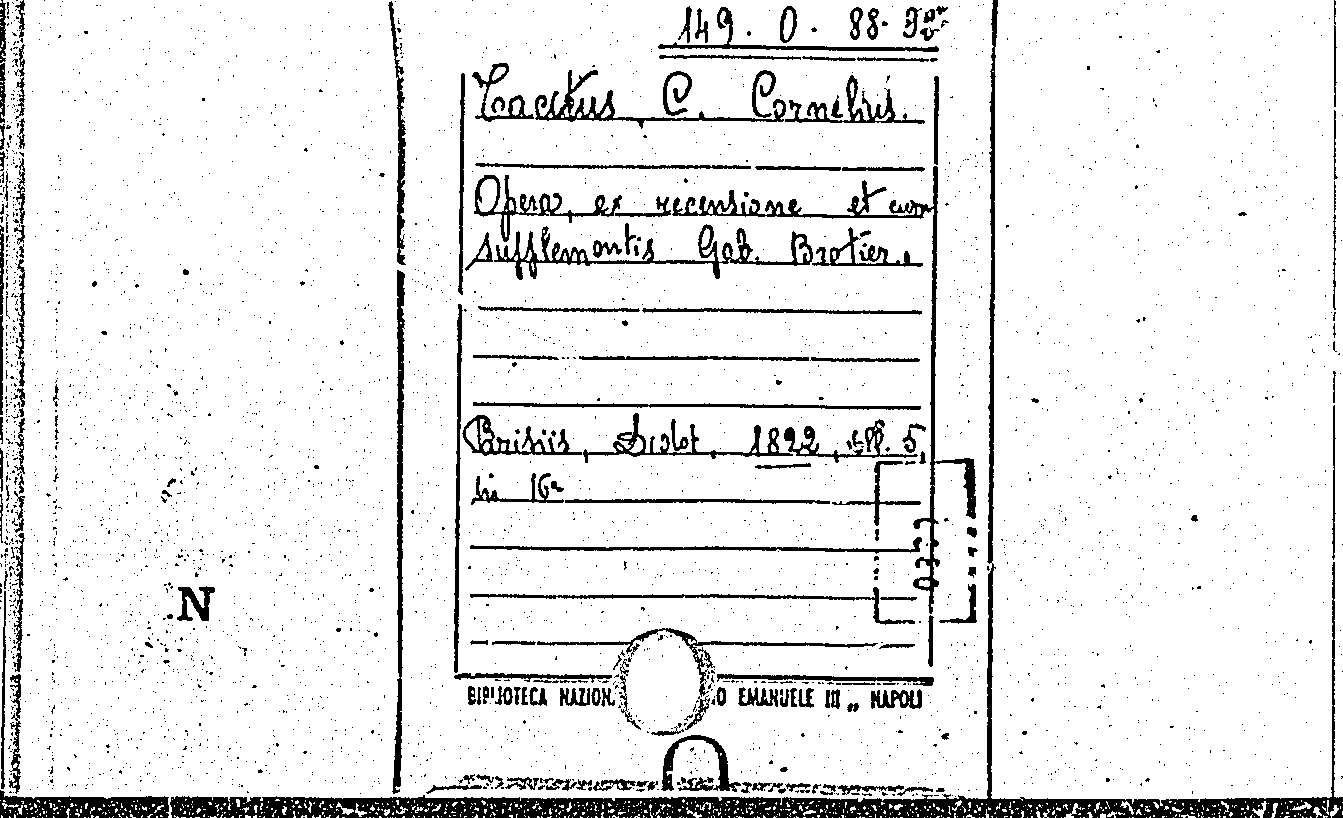 149. O. 88.
Tacitus, C. Cornelius.
Opera, ex recensione et cum
supplementis Gab. Brotier.
Parisiis, Didot, 1822, 5,
in 16°
N
BIBLIOTECA NAZION O EMANUELE III „ NAPOLI